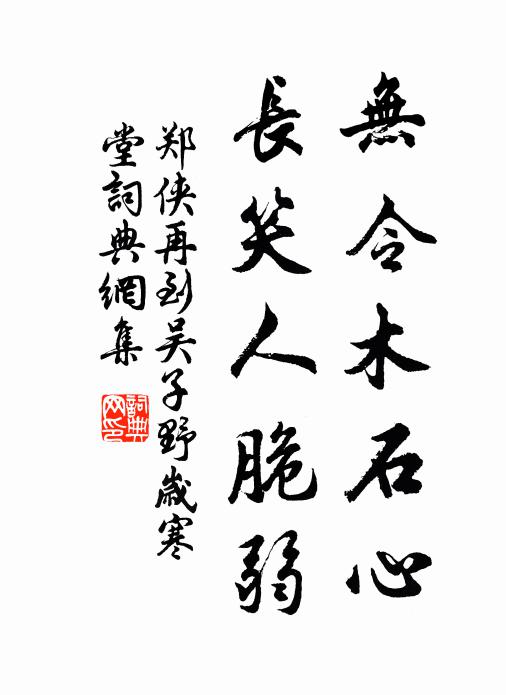 無令木石心
長笑人脆弱
郑侠再到吴子野歲寒
堂詞典網集
詞典
网印